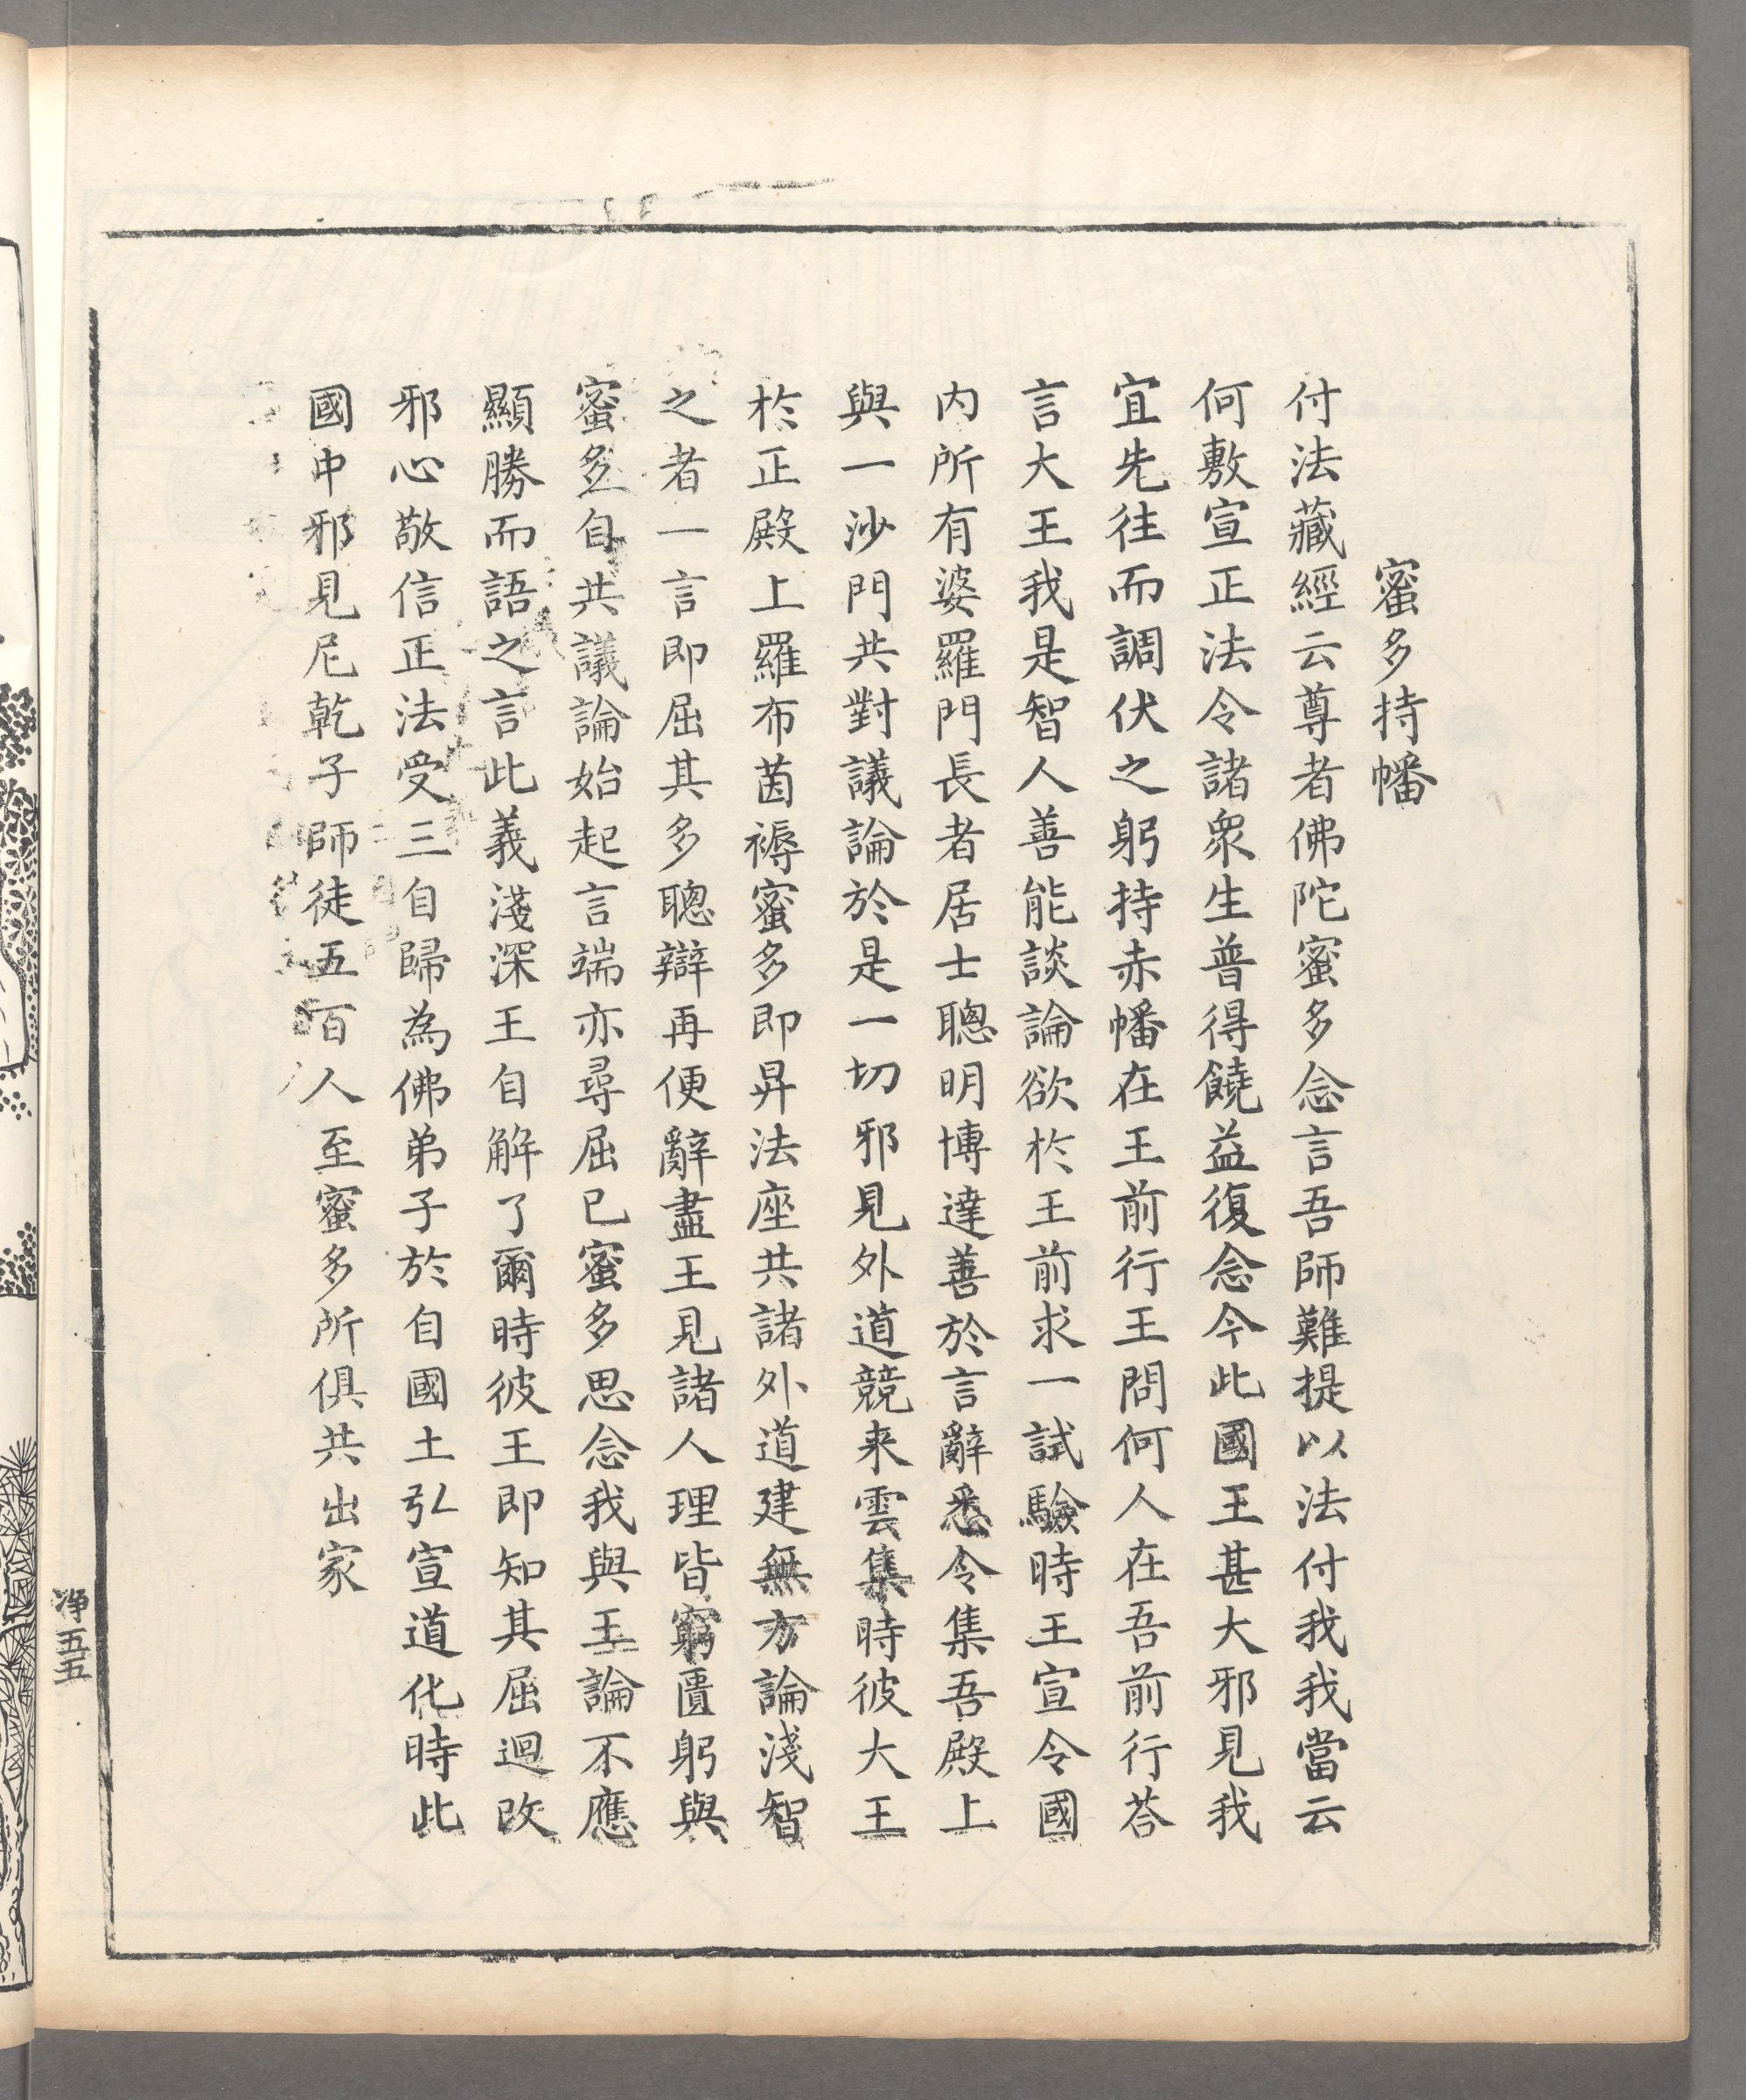 蜜多持幡
付法藏經云尊者佛陀蜜多念言吾師難提以法付我我當云
何敷宣正法令諸衆生普得饒益復念今此國王甚大邪見我
宜先往而調伏之躬持赤幡在王前行王問何人在吾前行荅
言大王我是智人善能談論欲於王前求一試驗時王宣令國
内所有婆羅門長者居士聰明博達善於言辭悉令集吾殿上
與一沙門共對議論於是一切邪見外道競来雲集時彼大王
於正殿上羅布茵褥蜜多即昇法座共諸外道建無方論淺智
之者一言即屈其多聰辯再便辭盡王見諸人理皆窮匱躬與
蜜多自共議論始起言端亦尋屈已蜜多思念我與王論不應
顯勝而語之言此義淺深王自解了爾時彼王即知其屈迴改
邪心敬信正法受三自歸為佛弟子於自國土弘宣道化時此
國中邪見尼乾子師徒五百人至蜜多所俱共出家
淨五五